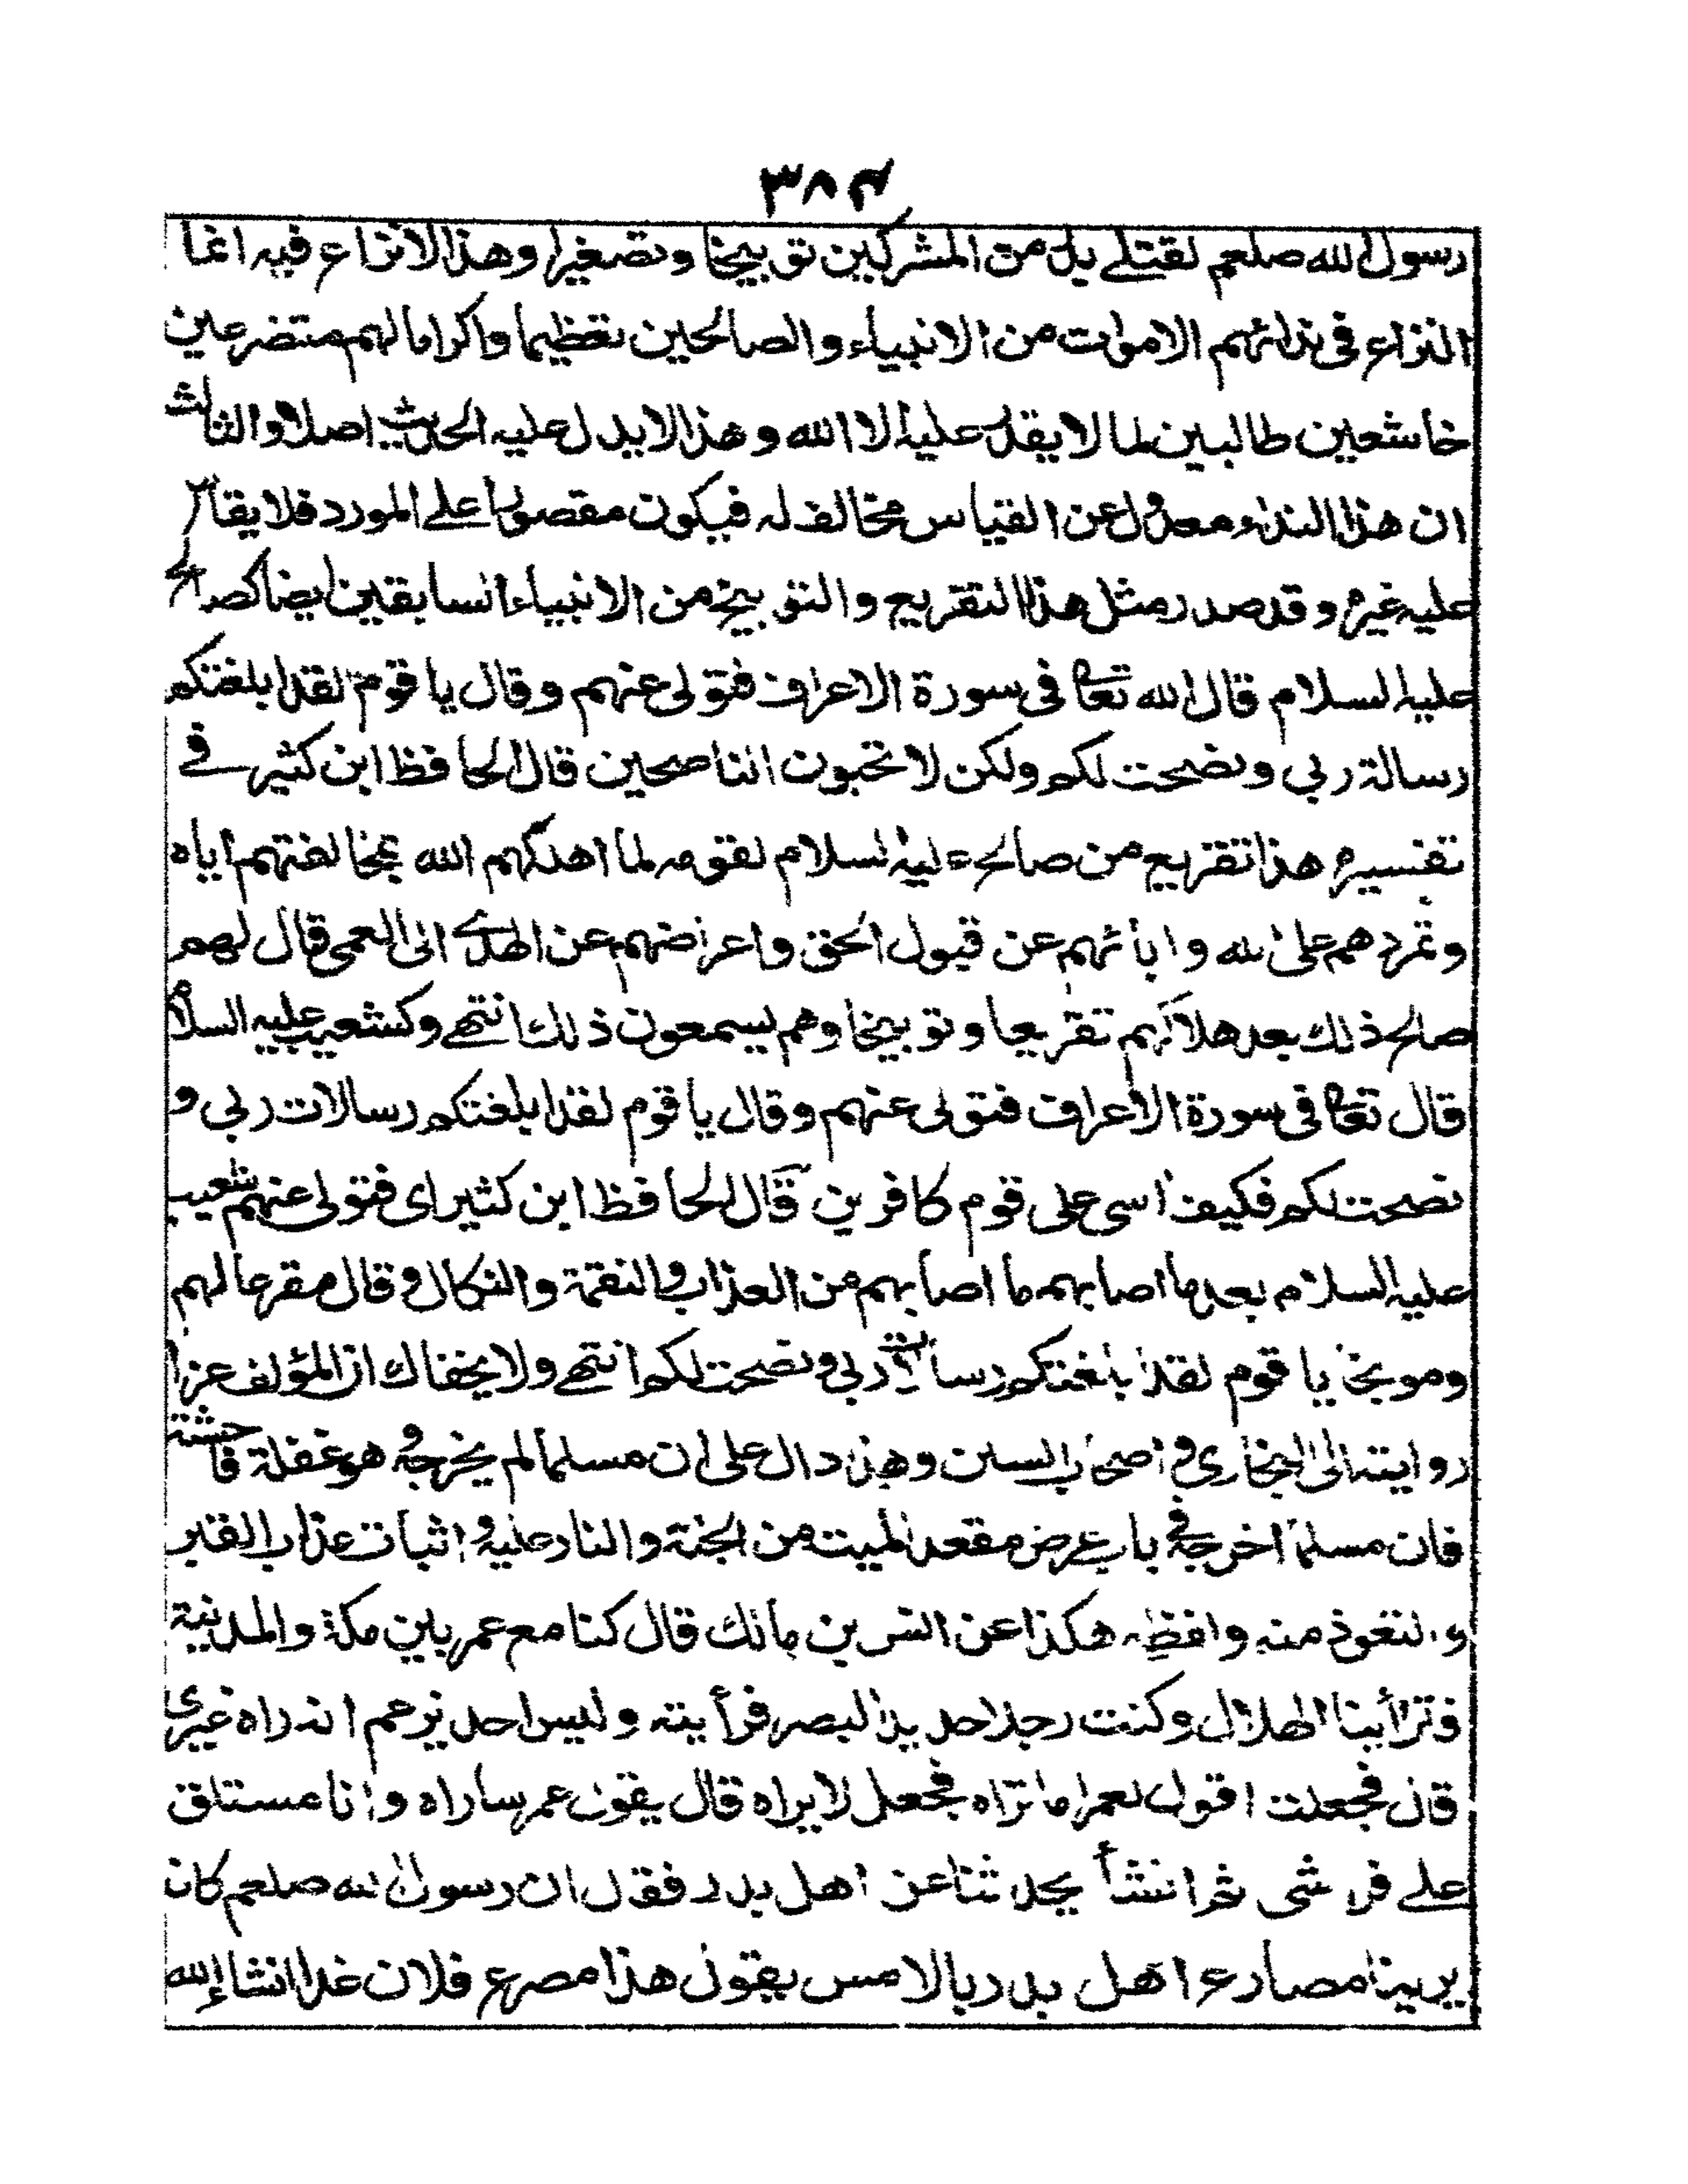 ٣٨٤
رسول الله صلعم لقتلے بدر من المشركين توبيخا وتصغيرا وهذا لا نزاع فيه انما
النزاع فى ندائهم الاموات من الانبياء والصالحين تعظيما واكراما لهم متضرعين
خاشعين طالبين لما لا يقدر عليه الا الله وهذا لا يدل عليه الحديث اصلا والثالث
ان هذا النداء معدول عن القياس مخالف له فيكون مقصورا على المورد فلا يقاس
عليه غيره وقد صدر مثل هذا التقريع والتوبيخ من الانبياء السابقين ايضا كصالح
عليه السلام قال الله تعا فى سورة الاعراف فتولى عنهم وقال يا قوم لقد ابلغتكم
رسالة ربي ونصحت لكم ولكن لا تحبون الناصحين قال الحافظ ابن كثير فے
تفسيره هذا تقريع من صالح عليه السلام لقومه لما اهلكهم الله بمخالفتهم اياه
وتمردهم على الله وابائهم عن قبول الحق واعراضهم عن الهدى الى العمى قال لهم
صالح ذلك بعد هلاكهم تقريعا وتوبيخا وهم يسمعون ذلك انتهے وكشعيب عليه السلام
قال تعا فى سورة الاعراف فتولى عنهم وقال يا قوم لقد ابلغتكم رسالات ربي و
نصحت لكم فكيف اسى على قوم كافرين قال الحافظ ابن كثير اى فتولى عنهم شعيب
عليه السلام بعد ما اصابهم ما اصابهم من العذاب والنقمة والنكال وقال مقرعا لهم
وموبخا يا قوم لقد ابلغتكم رسالات ربي ونصحت لكم انتهے ولا يخفاك ان المؤلف عزا
روايته الى البخارى واصحاب السنن وهذا دال على ان مسلما لم يخرجه وهو غفلة فاحشة
فان مسلما اخرجه فى باب عرض مقعد الميت من الجنة والنار عليه واثبات عذاب القبر
والتعوذ منه ولفظه هكذا عن انس بن مالك قال كنا مع عمر بين مكة والمدينة
فترأينا الهلال وكنت رجلا حديد البصر فرأيته وليس احد يزعم انه راه غيرى
قال فجعلت اقول لعمر اما تراه فجعل لا يراه قال يقول عمر ساراه وانا مستلق
على فراشى ثم انشأ يحدثنا عن اهل بدر فقال ان رسول الله صلعم كان
يرينا مصارع اهل بدر بالامس يقول هذا مصرع فلان غدا انشاء الله